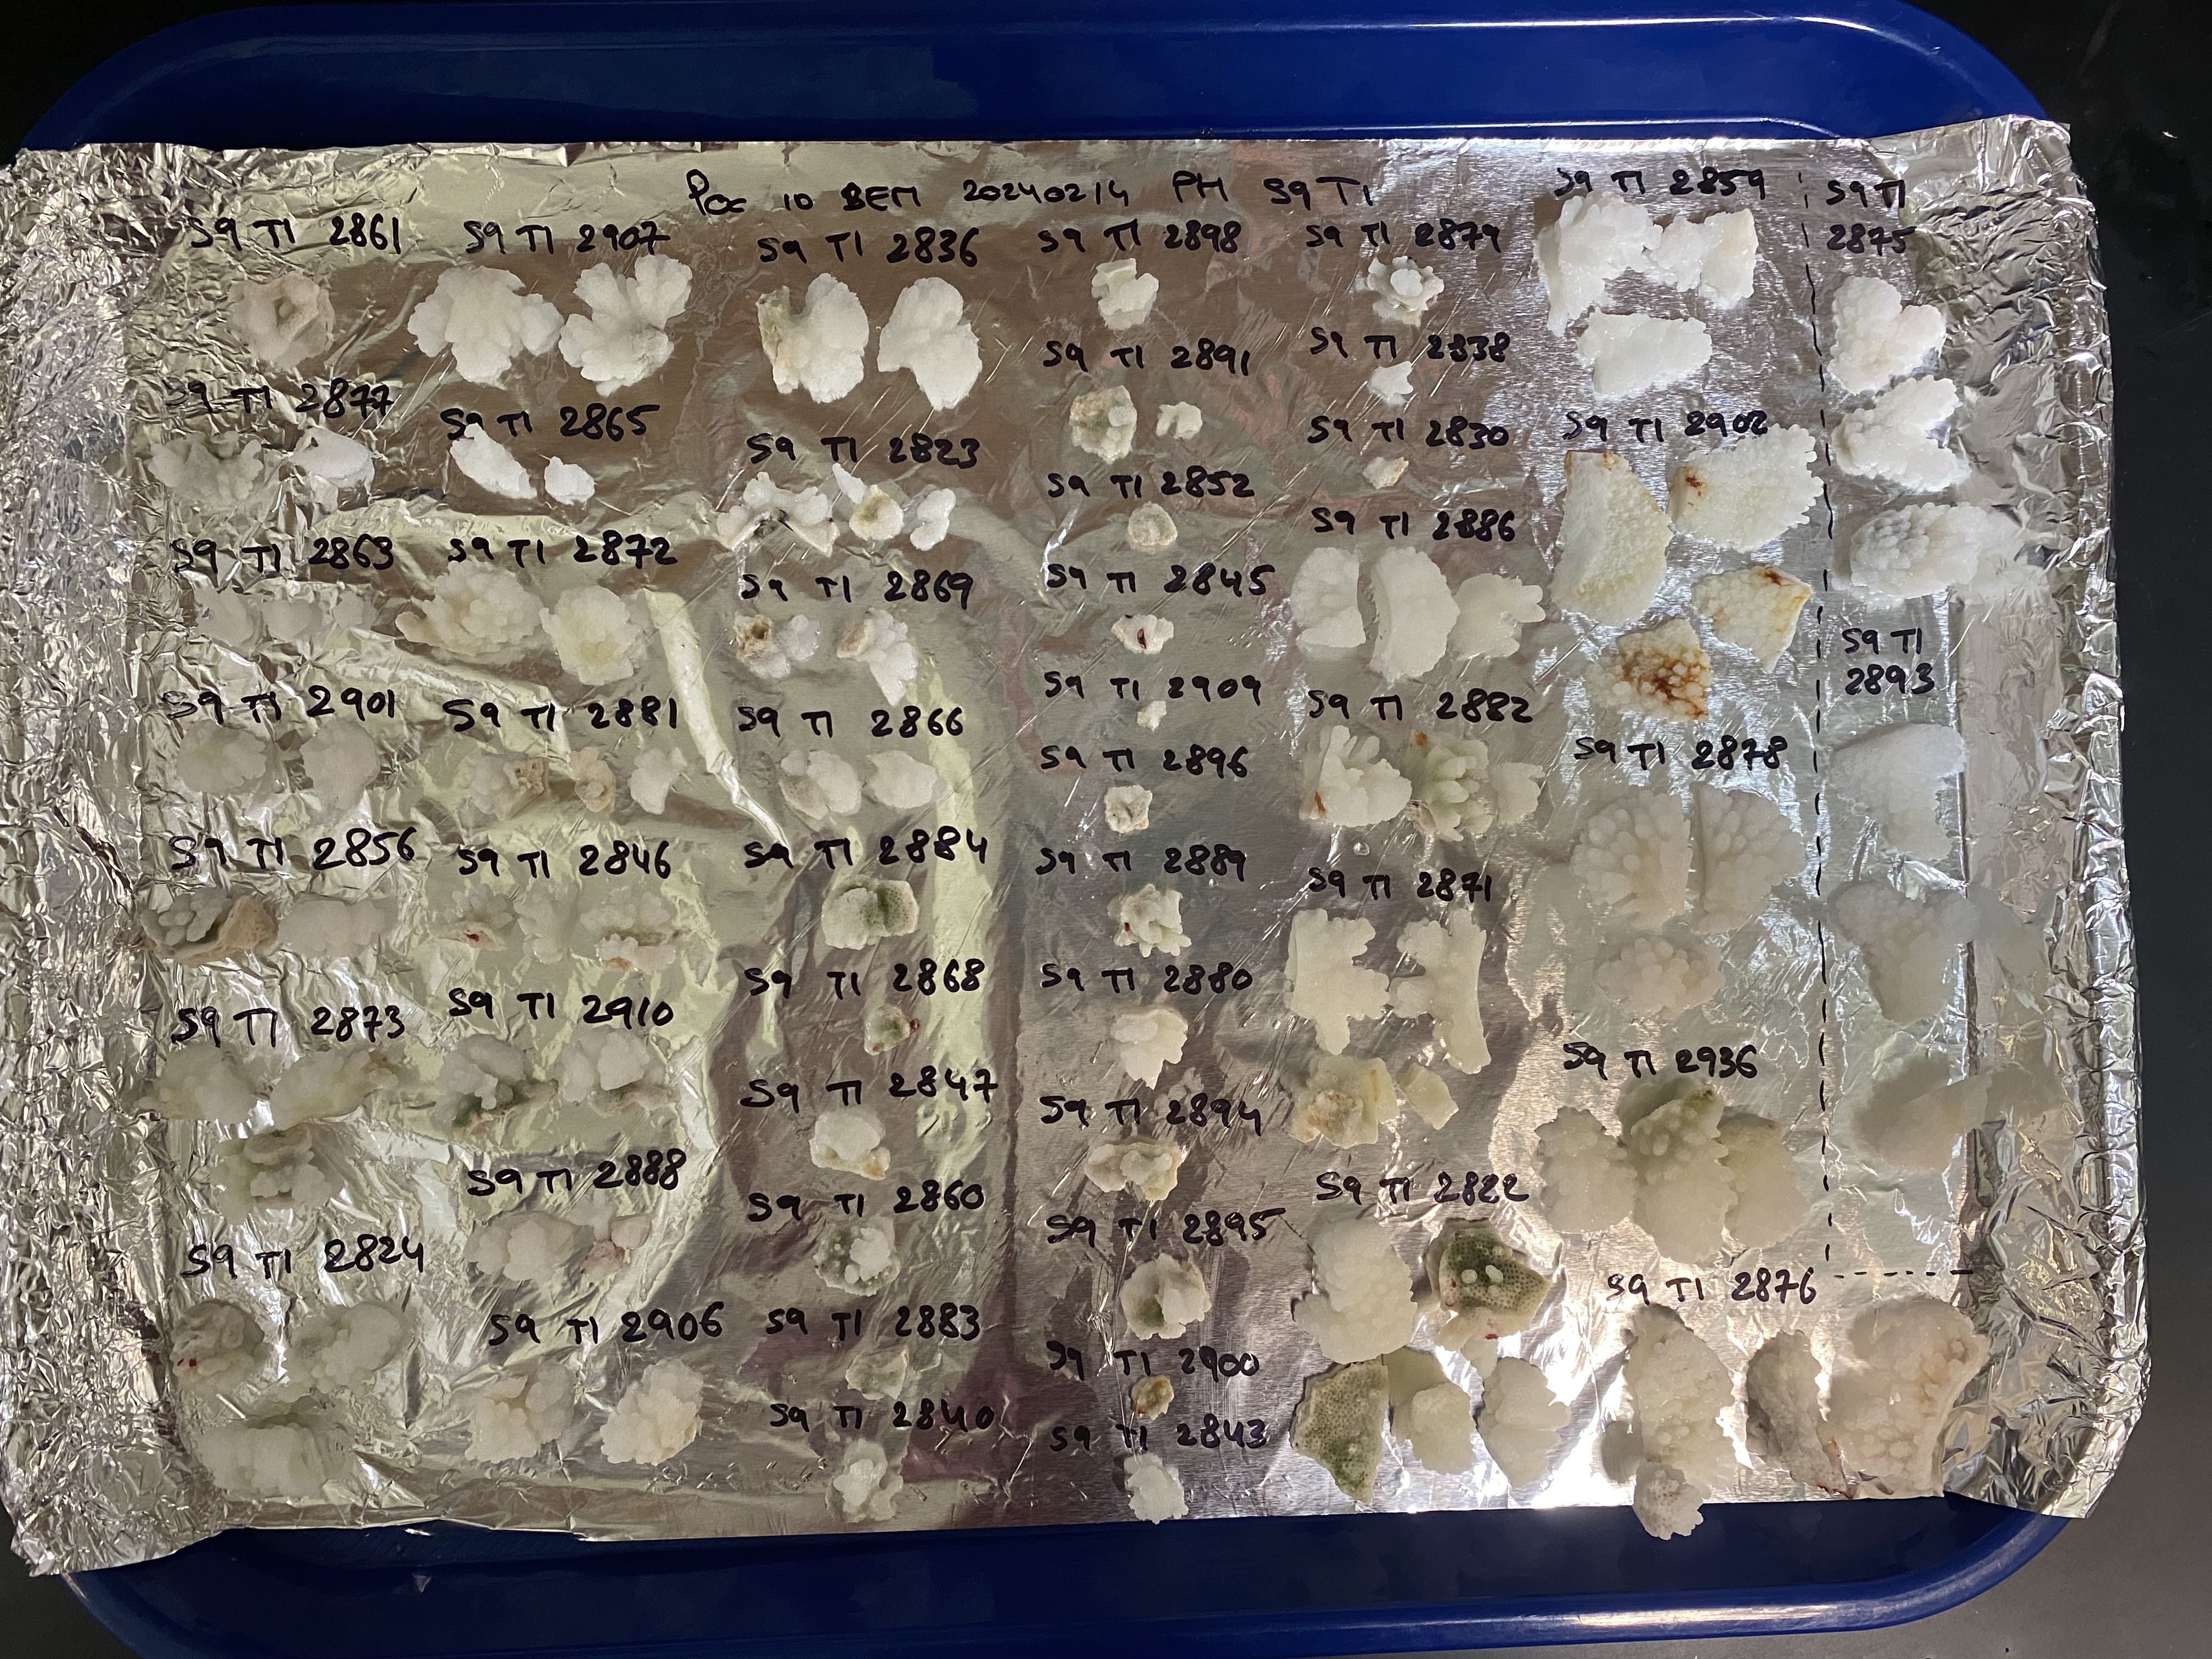 Poc 10 BEM 20240214 PH S9 T1
S9 T1 2861
S9 T1 2877
S9 T1 2863
S9 T1 2901
S9 T1 2856
S9 T1 2873
S9 T1 2824
S9 T1 2907
S9 T1 2865
S9 T1 2872
S9 T1 2881
S9 T1 2846
S9 T1 2910
S9 T1 2888
S9 T1 2906
S9 T1 2836
S9 T1 2823
S9 T1 2869
S9 T1 2866
S9 T1 2884
S9 T1 2868
S9 T1 2847
S9 T1 2860
S9 T1 2883
S9 T1 2840
S9 T1 2898
S9 T1 2891
S9 T1 2852
S9 T1 2845
S9 T1 2909
S9 T1 2896
S9 T1 2889
S9 T1 2880
S9 T1 2894
S9 T1 2895
S9 T1 2900
S9 T1 2843
S9 T1 2879
S9 T1 2838
S9 T1 2830
S9 T1 2886
S9 T1 2882
S9 T1 2871
S9 T1 2822
S9 T1 2859
S9 T1 2902
S9 T1 2878
S9 T1 2936
S9 T1 2876
S9 T1
2875
S9 T1
2893